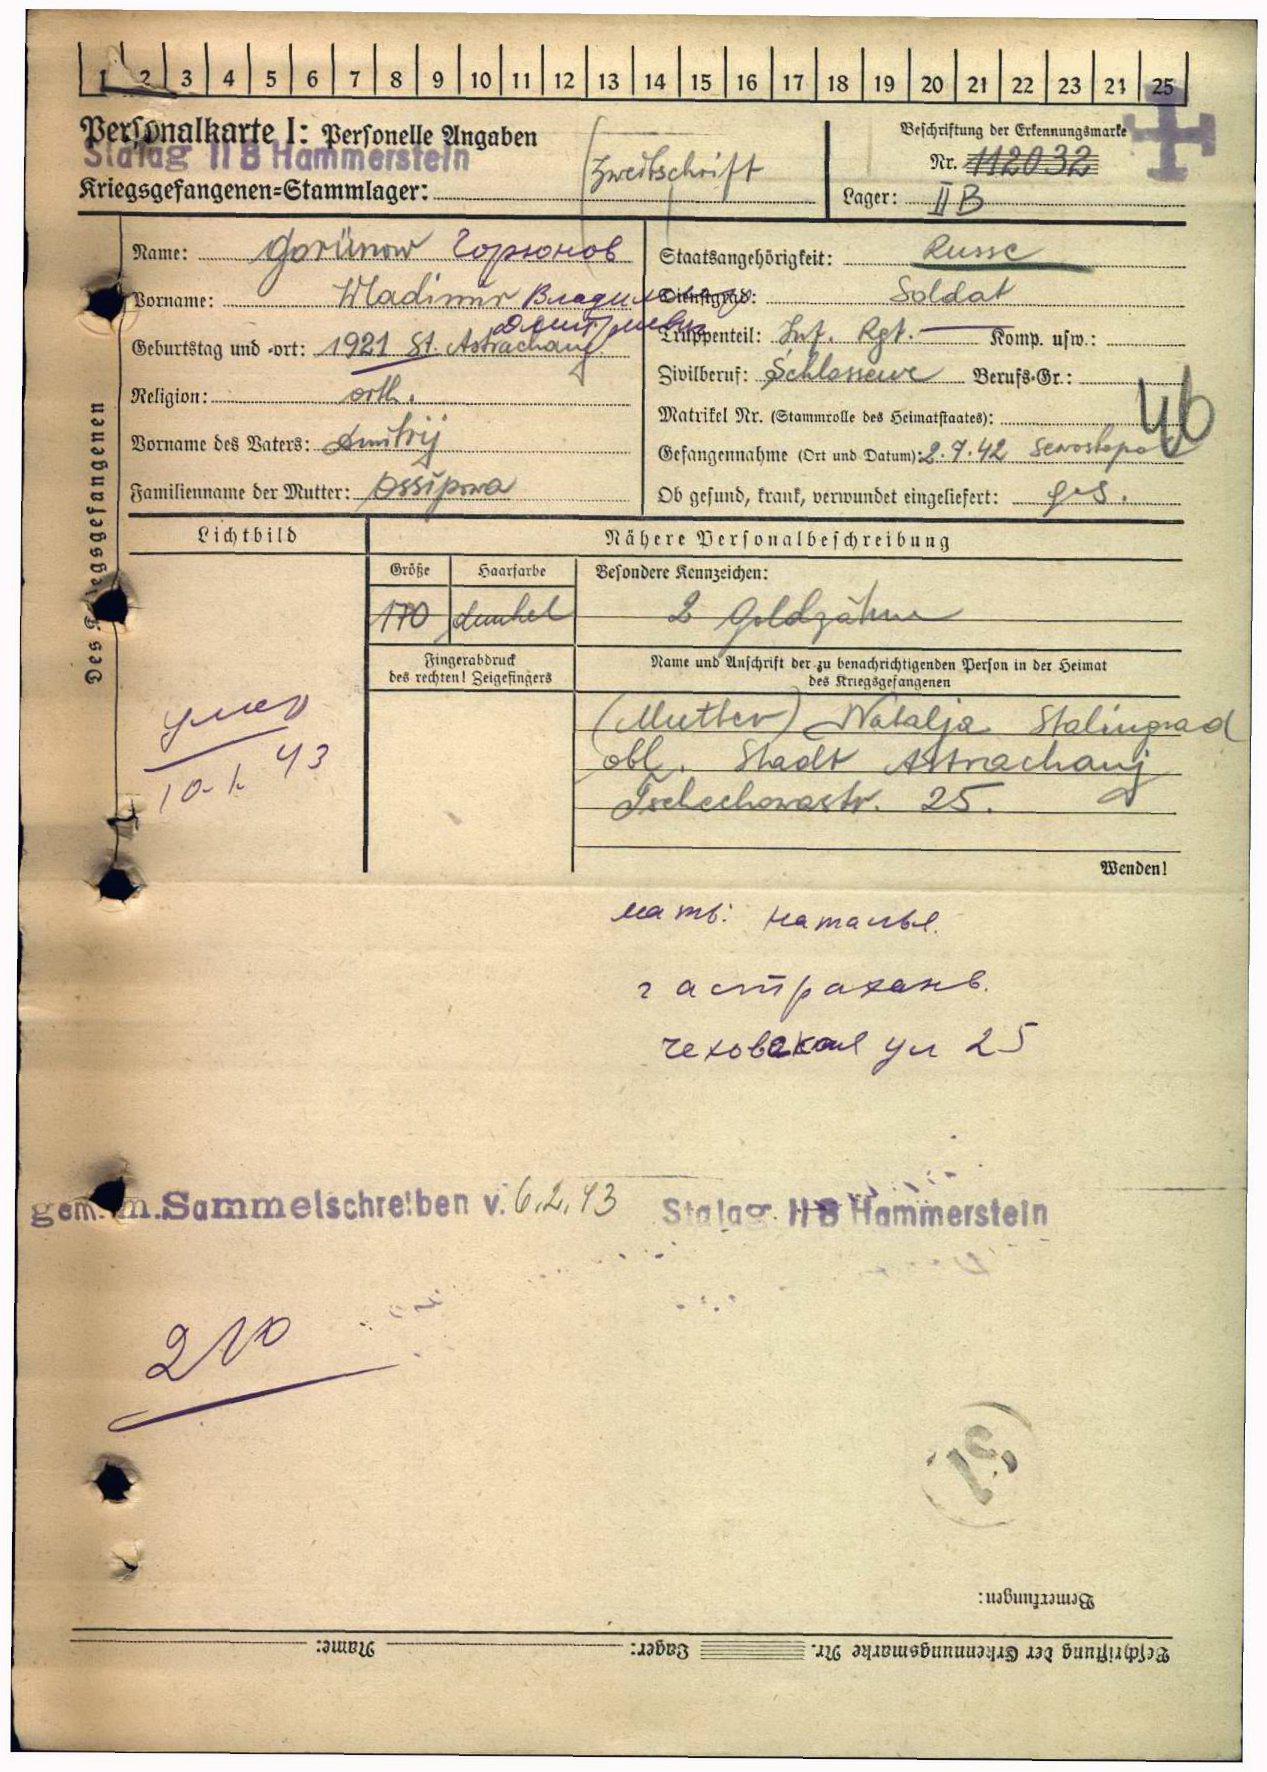 1 2 3 4 5 6 7 8 9 10 11 12 13 14 15 16 17 18 19 20 21 22 23 24 25
Personalkarte I: Personelle Angaben
Stalag II B Hammerstein
Kriegsgefangenen-Stammlager:
Zweitschrift
Beschriftung der Erkennungsmarke
Nr. 112032
Lager: II B
Des Kriegsgefangenen
Name: Gorünow Горюнов
Vorname: Wladimir Владимир
Дмитриевич
Geburtstag und -ort: 1921 St. Astrachanj
Religion: orth.
Vorname des Vaters: Dmitrij
Familienname der Mutter: Ossipowa
Staatsangehörigkeit: Russe
Dienstgrad: Soldat
Truppenteil: Inf. Rgt. — Komp. usw.:
Zivilberuf: Schlosser Berufs-Gr.:
Matrikel Nr. (Stammrolle des Heimatstaates):
46
Gefangennahme (Ort und Datum): 2.7.42 Sewostopol
Ob gesund, krank, verwundet eingeliefert: ges.
Lichtbild
Nähere Personalbeschreibung
Größe Haarfarbe Besondere Kennzeichen:
170 dunkel 2 Goldzähne
Fingerabdruck
des rechten! Zeigefingers
Name und Anschrift der zu benachrichtigenden Person in der Heimat
des Kriegsgefangenen
(Mutter) Natalja Stalingrad
obl. Stadt Astrachanj
Tschechowastr. 25.
умер
10.1. 43
Wenden!
мать: наталья.
г астрахань.
чеховская ул 25
gem. m. Sammelschreiben v. 6.2.43 Stalag II B Hammerstein
210
Bemerkungen:
Beschriftung der Erkennungsmarke Nr. Lager: Name: